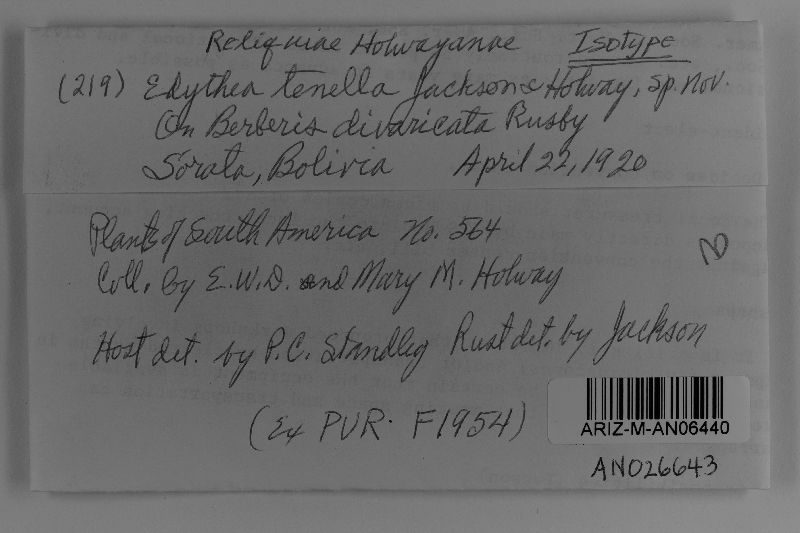 Reliquiae Holwayanae Isotype
(219) Edythea tenella Jackson & Holway, sp. nov.
On Berberis divaricata Rusby
Sorata, Bolivia April 22, 1920
Plants of South America No. 564
Coll. by E.W.D. and Mary M. Holway
Host det. by P.C. Standley Rust det. by Jackson
(Ex PUR. F1954)
ARIZ-M-AN06440
AN026643